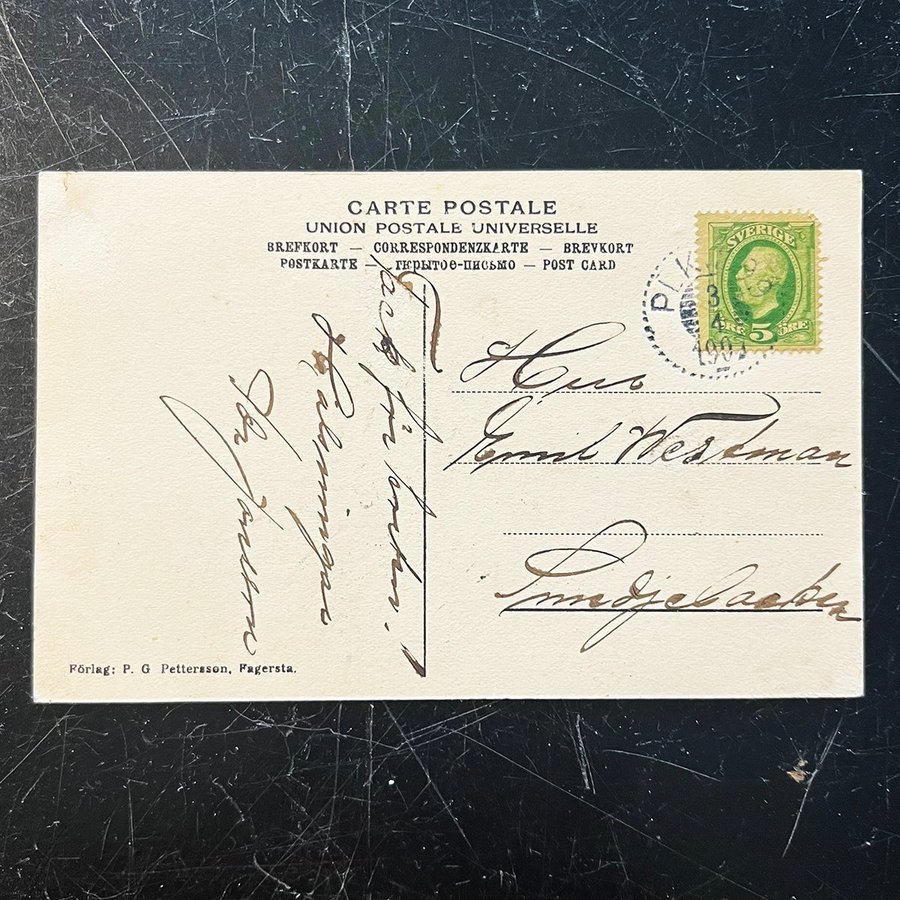 CARTE POSTALE
UNION POSTALE UNIVERSELLE
BREFKORT — CORRESPONDENZKARTE — BREVKORT
POSTKARTE — ОТКРЫТОЕ-ПИСЬМО — POST CARD
SVERIGE
5 ÖRE
3
4
Herr
Emil Westman
Smedjebacken
Tack för kortet!
Helsningar
Jansson
Förlag: P. G Pettersson, Fagersta.